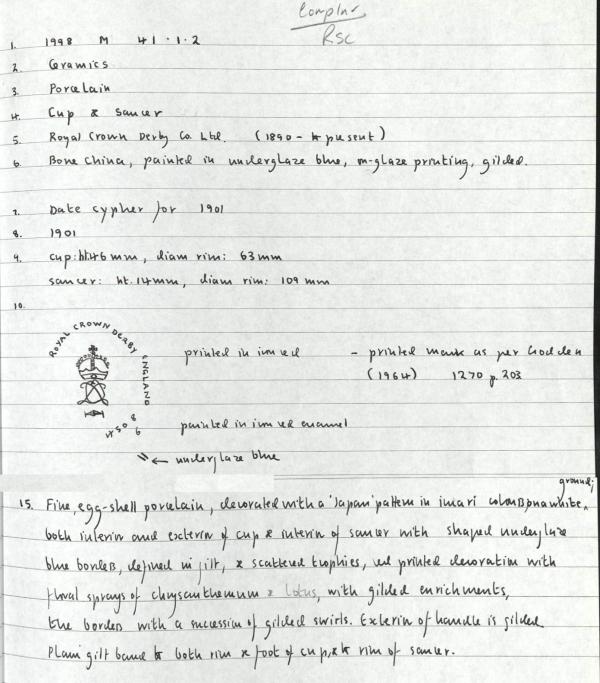 Complar
RSC
1. 1998 M 41.1.2
2. Ceramics
3. Porcelain
4. Cup & saucer
5. Royal Crown Derby Co. Ltd. (1890 - present)
6. Bone China, painted in underglaze blue, in-glaze printing, gilded.
7. Date cypher for 1901
8. 1901
9. cup: ht. 46 mm, diam rim: 63 mm
saucer: ht. 14mm, diam rim: 109 mm
10.
ROYAL CROWN DERBY ENGLAND
printed in iron red - printed mark as per Godden
(1964) 1270 p. 203
painted in iron red enamel
underglaze blue
15. Fine, egg-shell porcelain, decorated with a 'Japan' pattern in imari colours on a white ground;
both interior and exterior of cup & interior of saucer with shaped underglaze
blue borders, defined in gilt, & scattered trophies, red printed decoration with
floral sprays of chrysanthemum & lotus, with gilded enrichments,
the borders with a succession of gilded swirls. Exterior of handle is gilded.
Plain gilt band to both rim & foot of cup, & to rim of saucer.